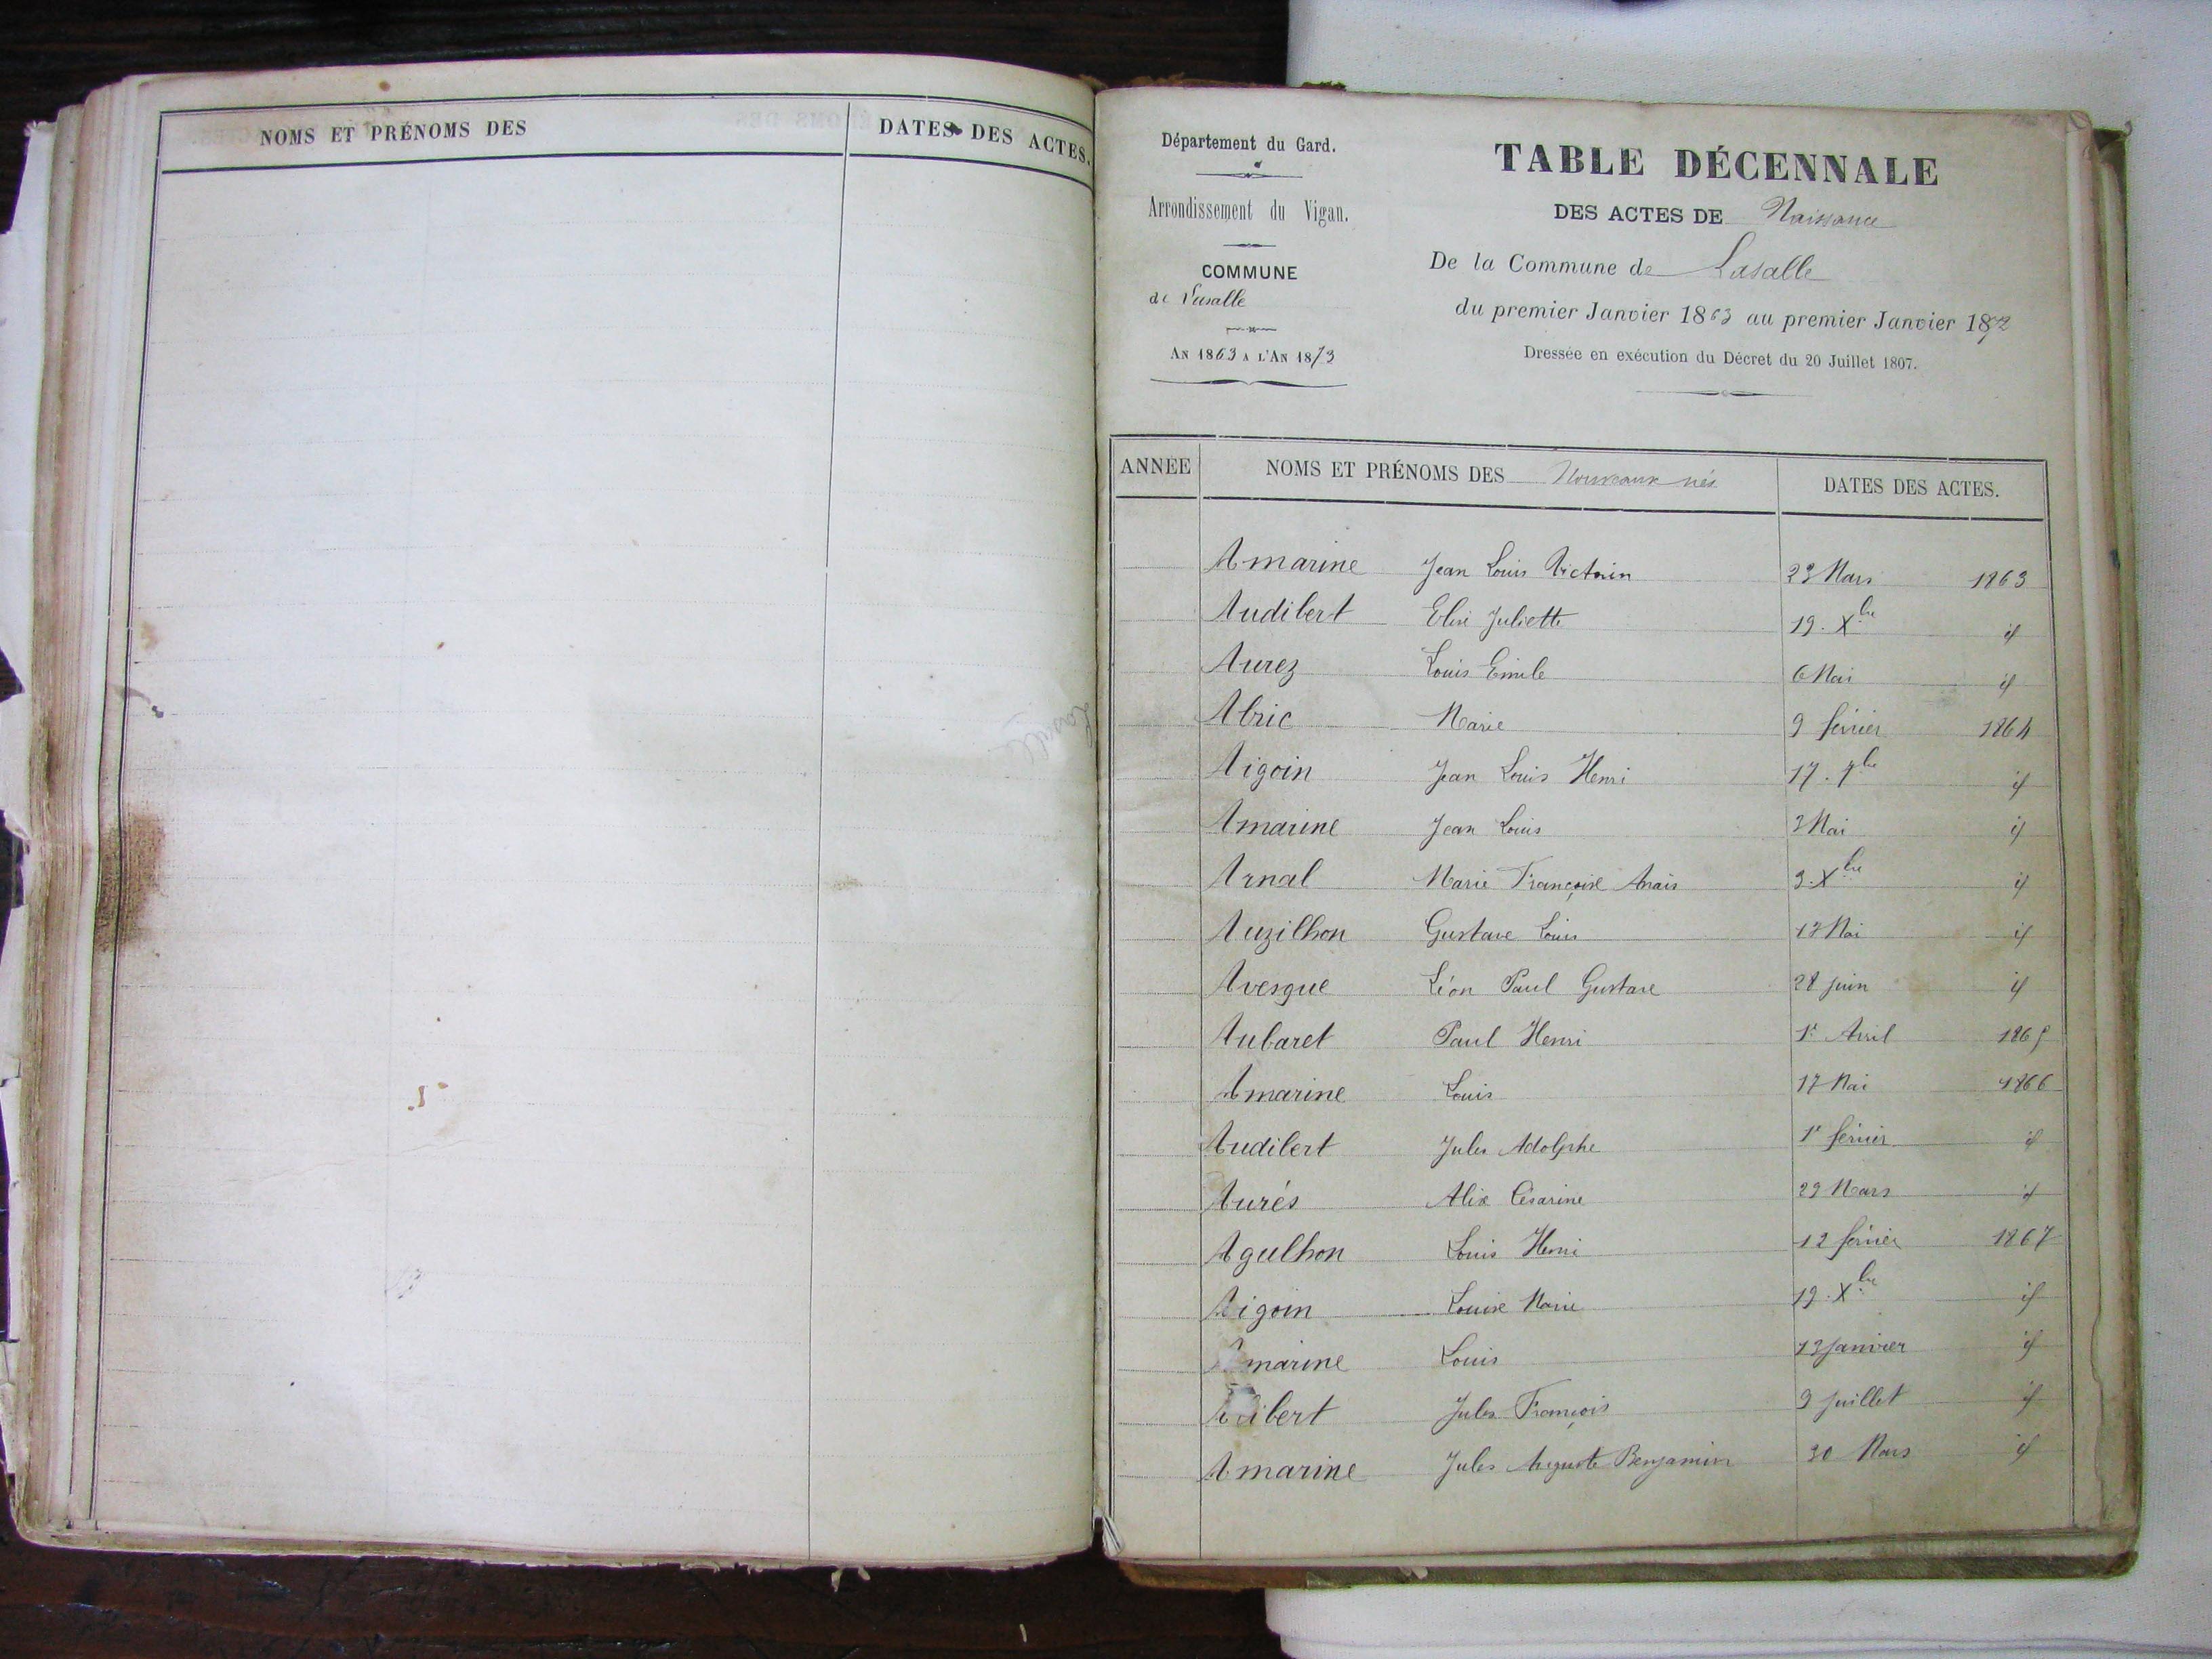 NOMS ET PRÉNOMS DES DATES DES ACTES.
Département du Gard.
Arrondissement du Vigan.
COMMUNE
de Lasalle
AN 1863 A L'AN 1873
TABLE DÉCENNALE
DES ACTES DE Naissance
De la Commune de Lasalle
du premier Janvier 1863 au premier Janvier 187
Dressée en exécution du Décret du 20 Juillet 1807.
ANNÉE NOMS ET PRÉNOMS DES Nouveaux nés DATES DES ACTES.
Amarine Jean Louis Victorin 23 Mars 1863
Audibert Elise Juliette 19. Xbre id
Aurez Louis Emile 6 Mai id
Abric Marie 9 février 1864
Aigoin Jean Louis Henri 17. 9bre id
Amarine Jean Louis 3 Mai id
Arnal Marie Françoise Anais 3. Xbre id
Auzilhon Gustave Louis 17 Mai id
Avesque Léon Paul Gustave 28 juin id
Aubaret Paul Henri 1r Avril 1865
Amarine Louis 17 Mai 1866
Audibert Jules Adolphe 1r février id
Aurés Alix Césarine 29 Mars id
Agulhon Louis Henri 12 février 1867
Aigoin Louise Marie 19. Xbre id
Amarine Louis 13 janvier id
Jules François 9 juillet id
Amarine Jules Auguste Benjamin 30 Mars id